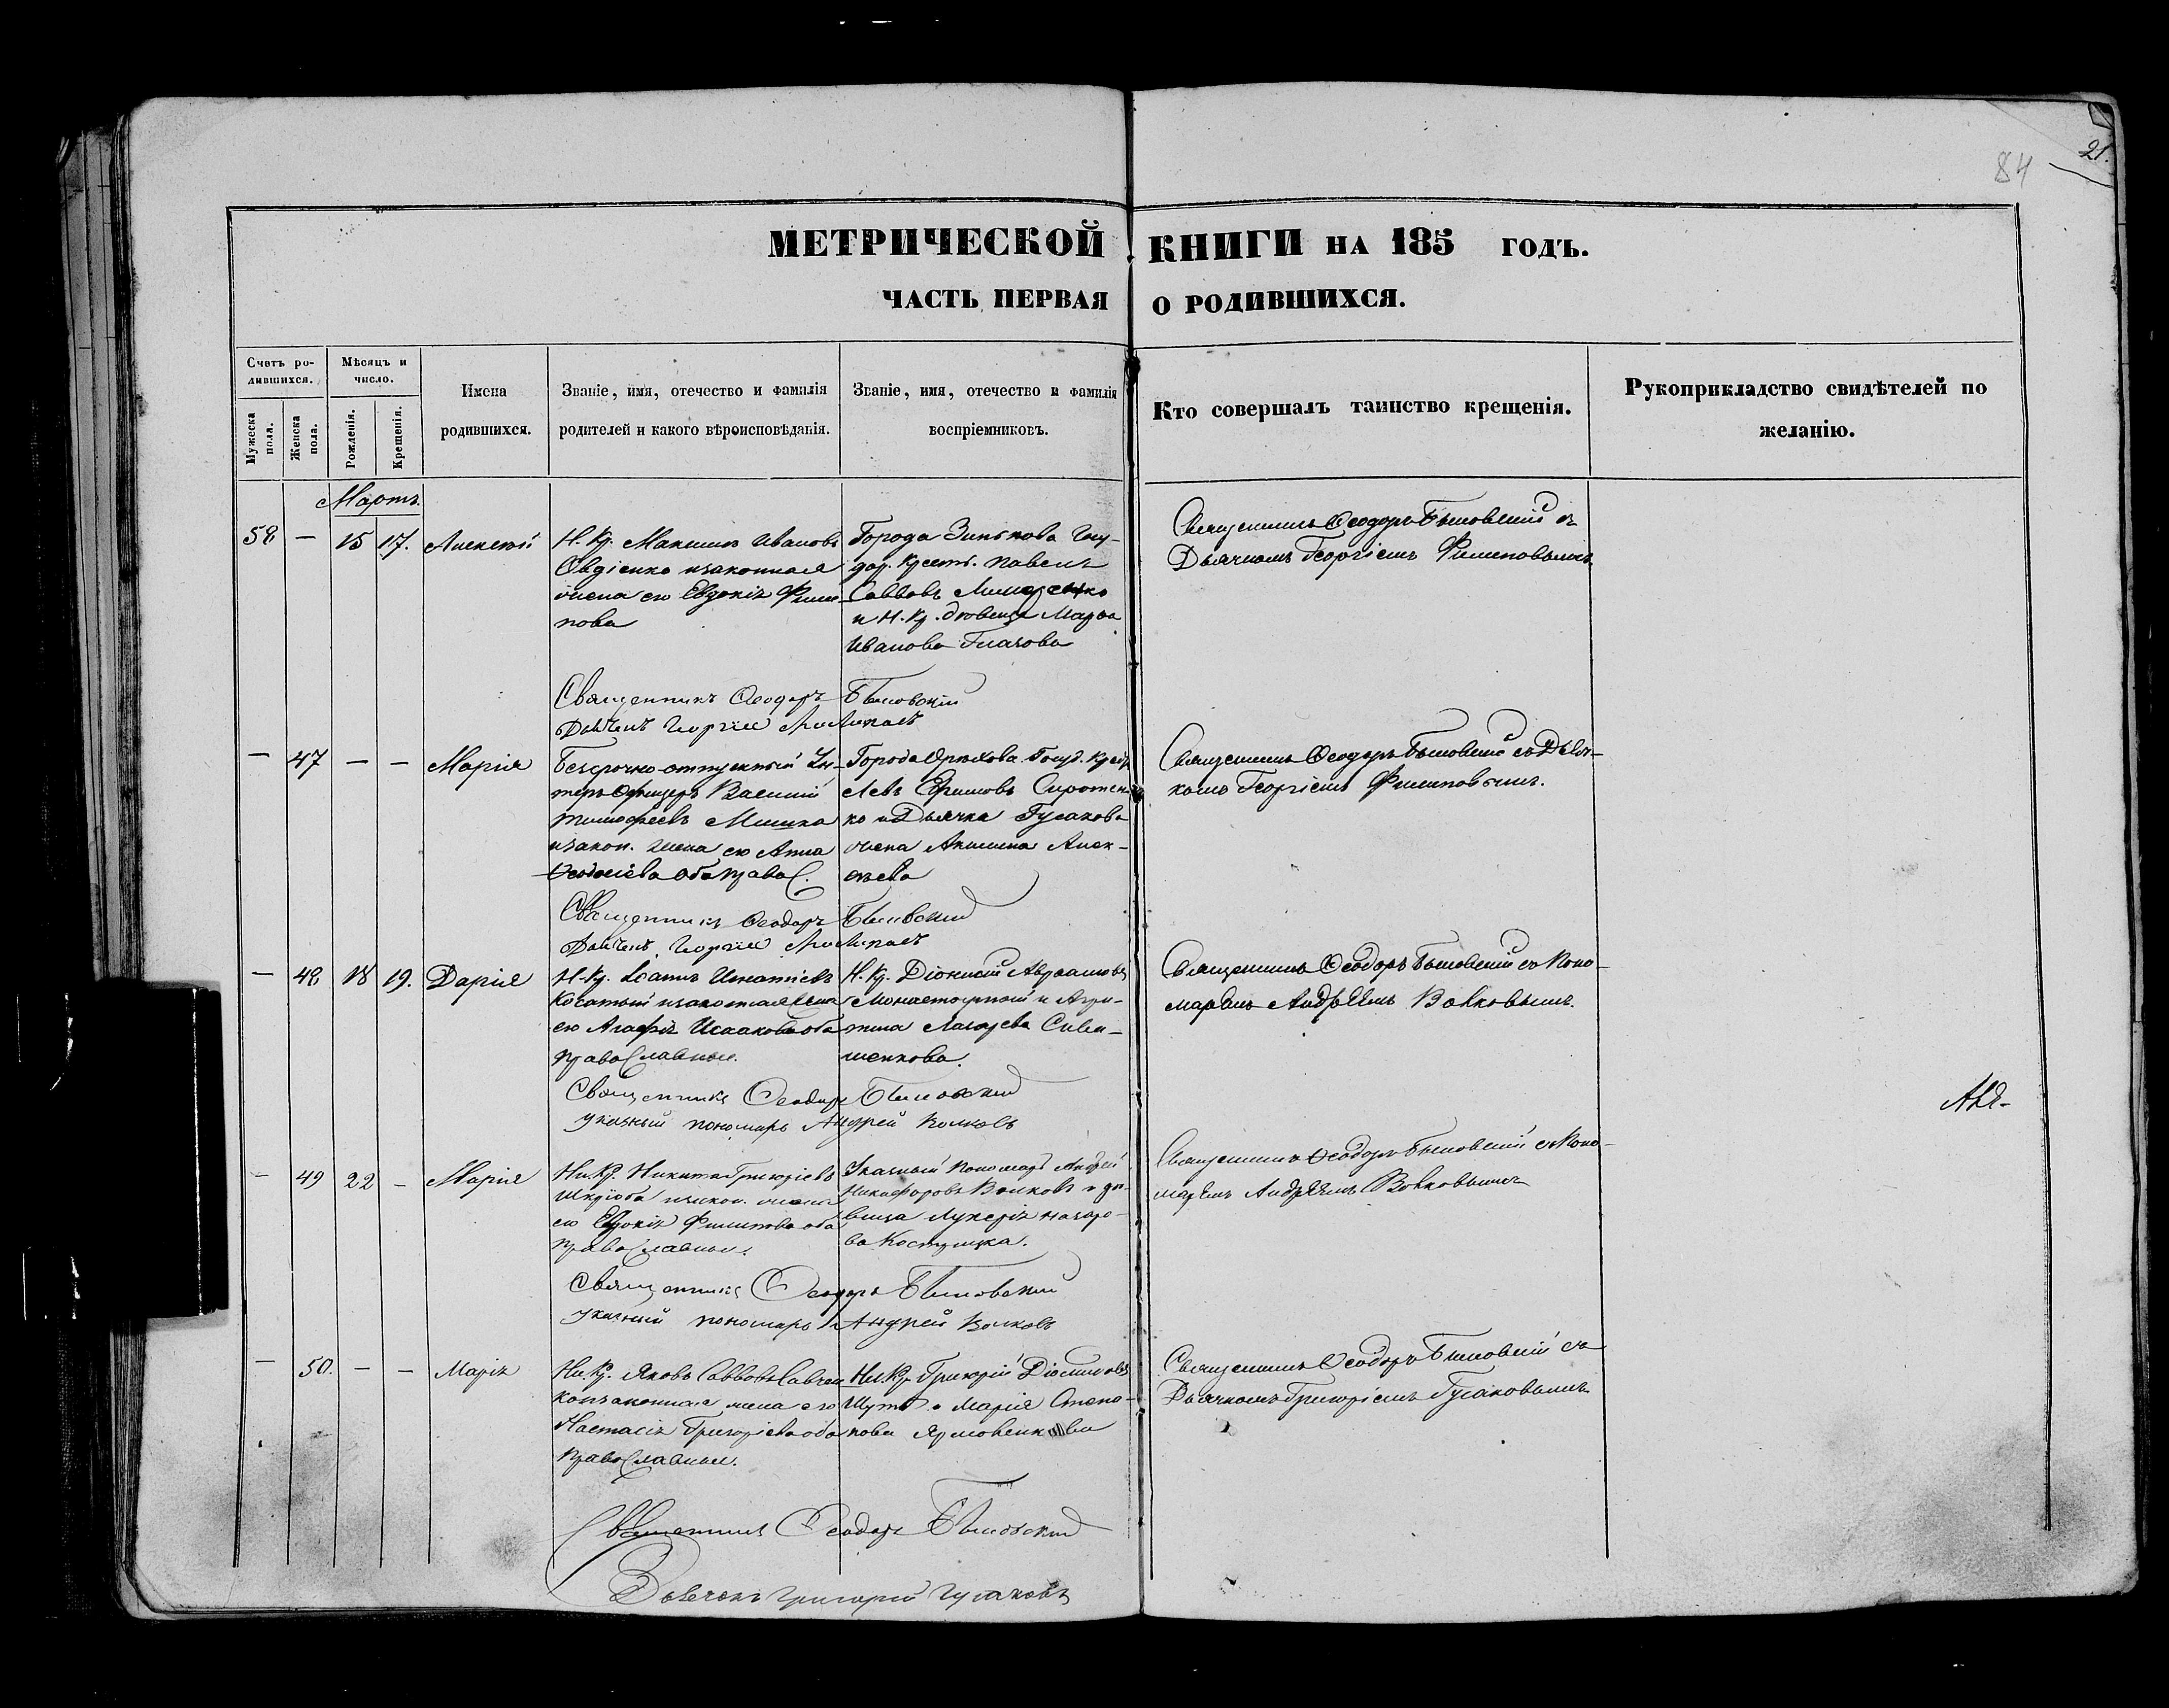 84
21.
МЕТРИЧЕСКОЙ КНИГИ НА 185 ГОДЪ.
ЧАСТЬ ПЕРВАЯ О РОДИВШИХСЯ.
Счетъ ро-
дившихся.
Мужеска
пола.
Женска
пола.
Мѣсяцъ и
число.
Рожденія.
Крещенія.
Имена
родившихся.
Званіе, имя, отечество и фамилія
родителей и какого вѣроисповѣданія.
Званіе, имя, отечество и фамилія
воспріемниковъ.
Кто совершалъ таинство крещенія.
Рукоприкладство свидѣтелей по
желанію.
Мартъ.
58 — 15 17. Алексѣй
Н. Кр. Максимъ Ивановъ
Овдіенко изаконная
жена его Евдокія Фили-
пова
Города Зинькова Госу-
дар. Крест. Павелъ
Саввовъ
и Н. Кр. дѣвица Марѳа
Иванова
Священникъ Ѳеодоръ съ
Дьячкомъ Георгіемъ Филиповымъ.
Священникъ Ѳеодоръ
— 47 — — Марія
Безсрочно-отпускный Ун-
теръ Офицеръ Василій
Тимофеевъ Мишка
изакон. жена его Анна
Ѳеодосіева оба правос.
Города Орѣхова Госуд. Крест.
Левъ Ефимовъ Сиротен
ко и Дьячка Гусакова
жена Акилина Алек-
сѣева
Священникъ Ѳеодоръ съ Дьяч-
комъ Георгіемъ Филиповымъ.
Священникъ Ѳеодоръ
— 48 18 19. Дарія
Н. Кр. Іоаннъ Игнатіевъ
Косатый изаконная жена
его Агафія Исаакова оба
православные.
Н. Кр. Діонисій Авраамовъ
Монастырный и Агри-
пина Лазарева Сиви-
шенкова.
Священникъ Ѳеодоръ съ Поно-
маремъ Андреемъ Волковымъ.
Священникъ Ѳеодоръ
указный пономарь Андрей Волковъ
— 49 22 — Марія
Ни. Кр. Никита Григоріевъ
изакон. жена
его Евдокія Филипова оба
православные.
Указный Пономарь Андрей
Никифоровъ Волковъ и дѣ-
вица Лукерія Назаро-
ва
Священникъ Ѳеодоръ съ Поно-
маремъ Андреемъ Волковымъ
Священникъ Ѳеодоръ
указный пономарь Андрей Волковъ
— 50. — — Марія
Ни. Кр. Яковъ Саввовъ Савчен
ко изаконная жена его
Настасія Григоріева оба
православные.
Ни. Кр. Григорій Діонисіевъ
Шутъ и Марія Степа-
нова Ярмовенкова
Священникъ Ѳеодоръ съ
Дьячкомъ Григоріемъ Гусаковымъ
Священникъ Ѳеодоръ
Дьячекъ Григорій Гусаковъ